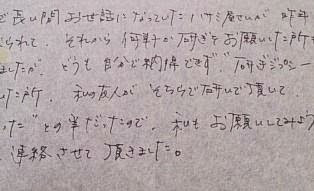 で長い間お世話になっていたハサミ屋さんが 昨年
じられて、それから 何軒か研ぎをお願いした所も
ましたが、どうも自分で納得できず 研ぎジプシー
した所、私の友人が そちらで研いで頂いて
った”との事だったので、私もお願いしてみよう
連絡させて頂きました。